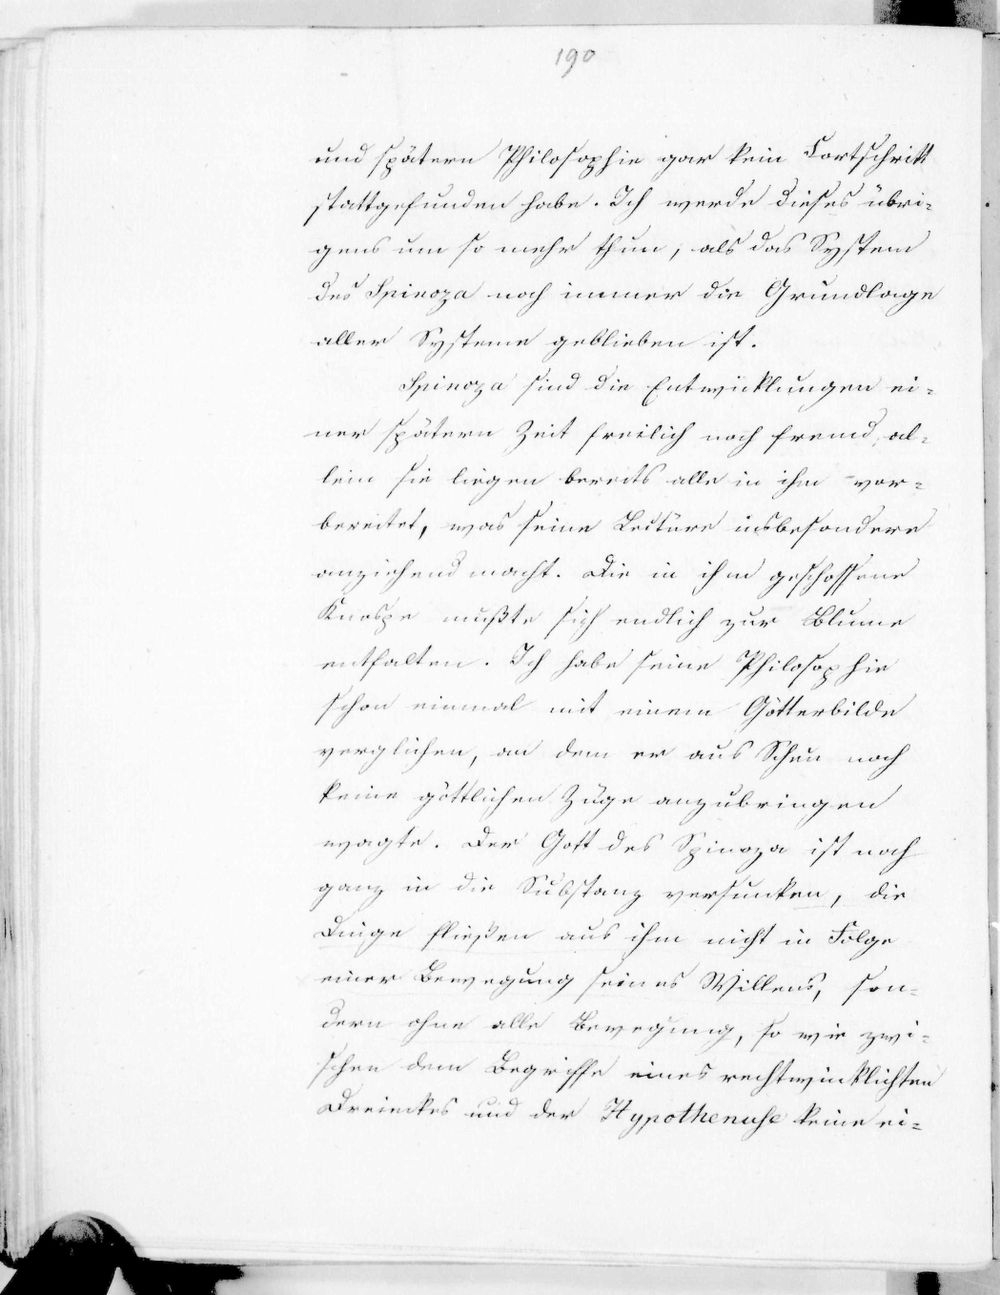 190
und spätern Philosophie gar kein Fortschritt
stattgefunden habe. Ich werde dieses übri-
gens um so mehr thun, als das System
des Spinoza noch immer die Grundlage
aller Systeme geblieben ist.
Spinoza sind die Entwicklungen ei-
ner spätern Zeit freilich noch fremd, al-
lein sie liegen bereits alle in ihm vor-
bereitet, was seine Lectüre insbesondere
anziehend macht. Die in ihm geschlossene
Knospe mußte sich endlich zur Blume
entfalten. Ich habe seine Philosophie
schon einmal mit einem Götterbilde
verglichen, an dem er aus Scheu noch
keine göttlichen Züge anzubringen
wagte. Der Gott des Spinoza ist noch
ganz in die Substanz versunken, die
Dinge fließen aus ihm nicht in Folge
einer Bewegung seines Willens, son-
dern ohne alle Bewegung, so wie zwi-
schen dem Begriffe eines rechtwinklichten
Dreieckes und der Hypothenuse keine ei-